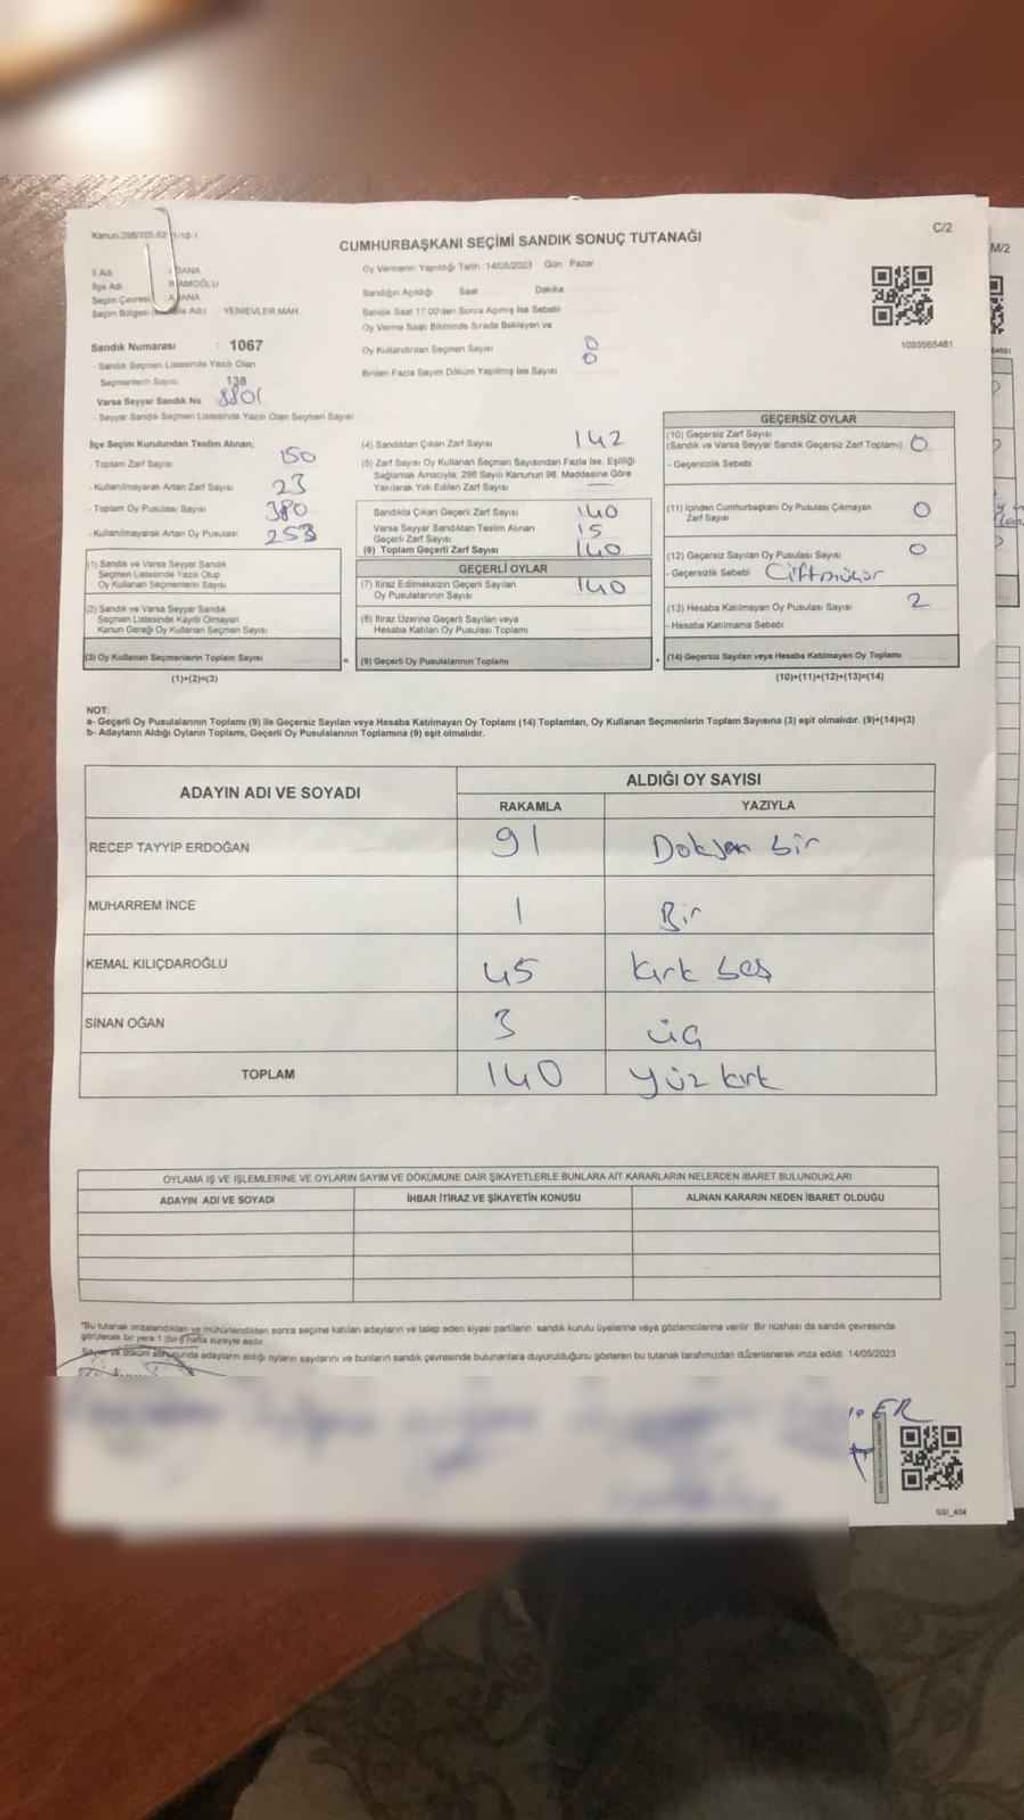 C/2
M/2
CUMHURBAŞKANI SEÇİMİ SANDIK SONUÇ TUTANAĞI
İl Adı
İlçe Adı
Seçim Çevresi
Seçim Bölgesi
YENİEVLER MAH.
Oy Vermenin Yapıldığı Tarih :14/05/2023 Gün: Pazar
Sandığın Açıldığı Saat Dakika
Sandık Saat 17:00'den Sonra Açılmış İse Sebebi
Oy Verme Saati Bitiminde Sırada Bekleyen ve
Oy Kullandırılan Seçmen Sayısı 0
Birden Fazla Sayım Döküm Yapılmış İse Sayısı 0
Sandık Numarası : 1067
- Sandık Seçmen Listesinde Yazılı Olan
Seçmenlerin Sayısı 138
Varsa Seyyar Sandık No 8801
- Seyyar Sandık Seçmen Listesinde Yazılı Olan Seçmen Sayısı
İlçe Seçim Kurulundan Teslim Alınan;
- Toplam Zarf Sayısı 150
- Kullanılmayarak Artan Zarf Sayısı 23
- Toplam Oy Pusulası Sayısı 380
- Kullanılmayarak Artan Oy Pusulası 253
(1) Sandık ve Varsa Seyyar Sandık
Seçmen Listesinde Yazılı Olup
Oy Kullanan Seçmenlerin Sayısı
(2) Sandık ve Varsa Seyyar Sandık
Seçmen Listesinde Kayıtlı Olmayan
Kanun Gereği Oy Kullanan Seçmen Sayısı
(3) Oy Kullanan Seçmenlerin Toplam Sayısı
(1)+(2)=(3)
(4) Sandıktan Çıkan Zarf Sayısı 142
(5) Zarf Sayısı Oy Kullanan Seçmen Sayısından Fazla İse, Eşitliği
Sağlamak Amacıyla; 298 Sayılı Kanunun 98. Maddesine Göre
Yakılarak Yok Edilen Zarf Sayısı —
Sandıkta Çıkan Geçerli Zarf Sayısı 140
Varsa Seyyar Sandıktan Teslim Alınan
Geçerli Zarf Sayısı 15
(6) Toplam Geçerli Zarf Sayısı 140
GEÇERLİ OYLAR
(7) İtiraz Edilmeksizin Geçerli Sayılan
Oy Pusulalarının Sayısı 140
(8) İtiraz Üzerine Geçerli Sayılan veya
Hesaba Katılan Oy Pusulası Toplamı
= (9) Geçerli Oy Pusulalarının Toplamı
1093565461
GEÇERSİZ OYLAR
(10) Geçersiz Zarf Sayısı
(Sandık ve Varsa Seyyar Sandık Geçersiz Zarf Toplamı) 0
- Geçersizlik Sebebi
(11) İçinden Cumhurbaşkanı Oy Pusulası Çıkmayan
Zarf Sayısı 0
(12) Geçersiz Sayılan Oy Pusulası Sayısı 0
- Geçersizlik Sebebi Çift mühür
(13) Hesaba Katılmayan Oy Pusulası Sayısı 2
- Hesaba Katılmama Sebebi
+ (14) Geçersiz Sayılan veya Hesaba Katılmayan Oy Toplamı
(10)+(11)+(12)+(13)=(14)
NOT:
a- Geçerli Oy Pusulalarının Toplamı (9) ile Geçersiz Sayılan veya Hesaba Katılmayan Oy Toplamı (14) Toplamları, Oy Kullanan Seçmenlerin Toplam Sayısına (3) eşit olmalıdır. (9)+(14)=(3)
b- Adayların Aldığı Oyların Toplamı, Geçerli Oy Pusulalarının Toplamına (9) eşit olmalıdır.
ADAYIN ADI VE SOYADI ALDIĞI OY SAYISI
RAKAMLA YAZIYLA
RECEP TAYYİP ERDOĞAN 91 Doksan bir
MUHARREM İNCE 1 Bir
KEMAL KILIÇDAROĞLU 45 kırk beş
SİNAN OĞAN 3 üç
TOPLAM 140 yüz kırk
OYLAMA İŞ VE İŞLEMLERİNE VE OYLARIN SAYIM VE DÖKÜMÜNE DAİR ŞİKAYETLERLE BUNLARA AİT KARARLARIN NELERDEN İBARET BULUNDUKLARI
ADAYIN ADI VE SOYADI İHBAR İTİRAZ VE ŞİKAYETİN KONUSU ALINAN KARARIN NEDEN İBARET OLDUĞU
*Bu tutanak imzalandıktan ve mühürlendikten sonra seçime katılan adayların ve talep eden siyasi partilerin sandık kurulu üyelerine veya gözlemcilerine verilir. Bir nüshası da sandık çevresinde
görülecek bir yere 1 (bir) hafta süreyle asılır.
adayların aldığı oyların sayılarını ve bunların sandık çevresinde bulunanlara duyurulduğunu gösteren bu tutanak tarafımızdan düzenlenerek imza edildi. 14/05/2023